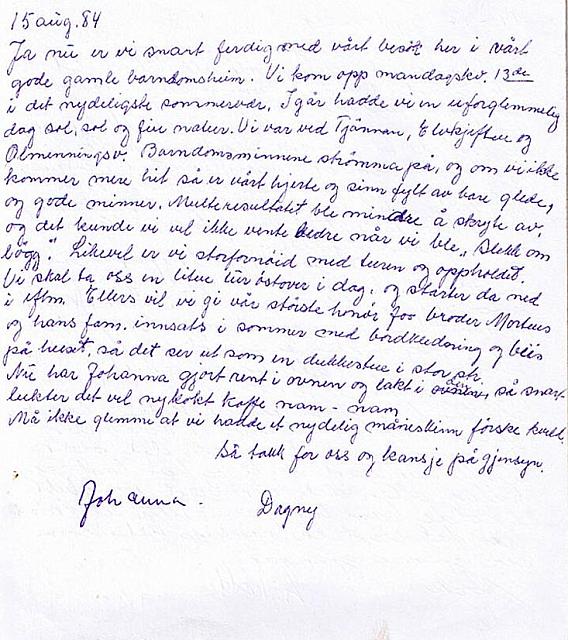 15 aug. 84
Ja nu er vi snart ferdig med vårt besøk her i vårt
gode gamle barndomsheim. Vi kom opp mandagskv. 13de
i det nydeligste sommervær. I går hadde vi en uforglemmelig
dag sol, sol og fin natur. Vi var ved Tjännan, Elvkjeften og
Olmenningsv. Barndomsminnene strömma på, og om vi ikke
kommer mere hit så er vårt hjerte og sinn fylt av bare glede,
og gode minner. Multeresultatet ble mindre å skryte av,
og det kunde vi vel ikke vente bedre når vi ble, "blekk om
bögg". Likevel er vi storfornöid med turen og oppholdet.
Vi skal ta oss en liten tur östover i dag, og starter da ned
i eftm. Ellers vil vi gi vår störste honör for broder Morteus
og hans fam. innsats i sommer med bordkledning og beis
på huset, så det ser ut som en dukkestue i stor str.
Nu har Johanna gjort rent i ovnen og lakt i den, så snart
lukter det vel nykokt kaffe nam - nam
Må ikke glemme at vi hadde et nydelig måneskinn förske kveld.
Så takk for oss og kansje på gjensyn.
Johanna. Dagny